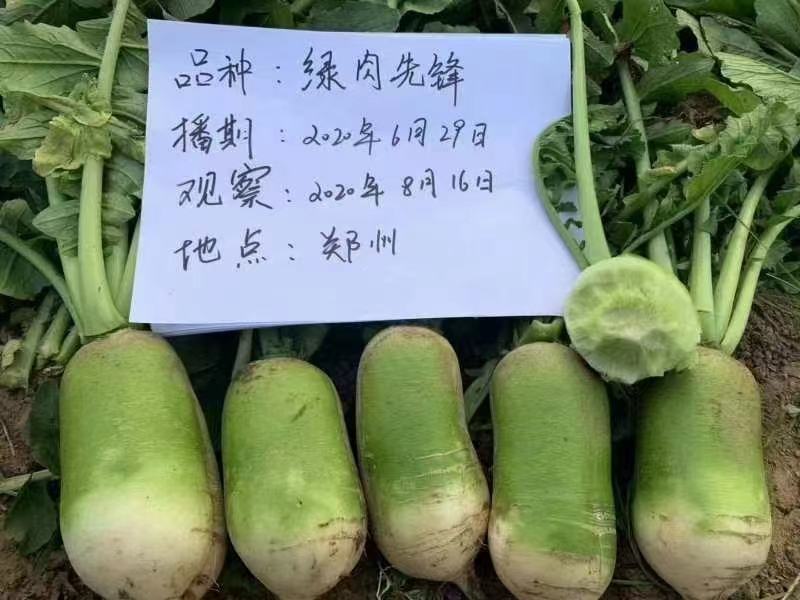 品种：绿肉先锋
播期：2020年6月29日
观察：2020年8月16日
地点：郑州